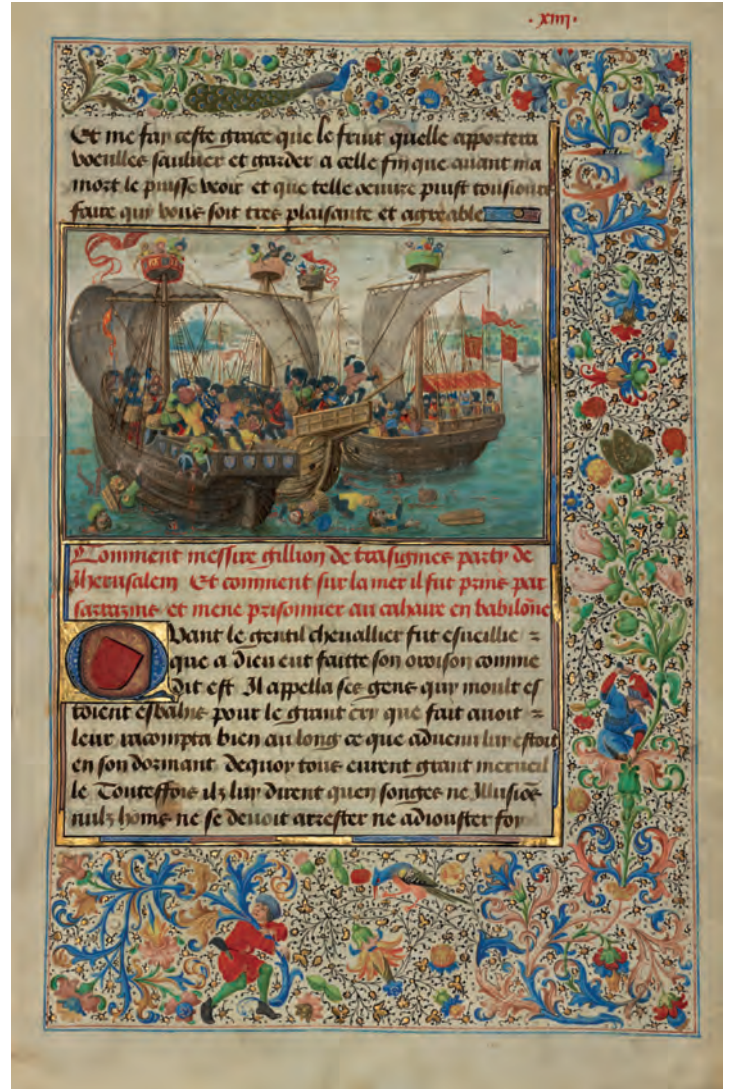 · xiiij ·
Et me fay ceste grace que le fruit quelle apportera
voeulles sauluer et garder a celle fin que auant ma
mort le puisse veoir et que telle oeuure puist tousiours
faire quy vous soit tres plaisante et agreable
Comment messire gillion de trasignies party de
Jherusalem Et comment sur la mer il fut prins par
sarrazins et mene prisonnier au cahaire en babilõne
Quant le gentil cheuallier fut esueillie
que a dieu eut faitte son oroison comme
dit est Il appella ses gens quy moult es
toient esbahis pour le grant cry que fait auoit
leur racompta bien au long ce que aduenu luy estoit
en son dormant dequoy tous eurent grant merueil
le Touteffois ilz luy dirent quen songes ne Illusiõs
nulz homs ne se deuoit arrester ne adiouster foy